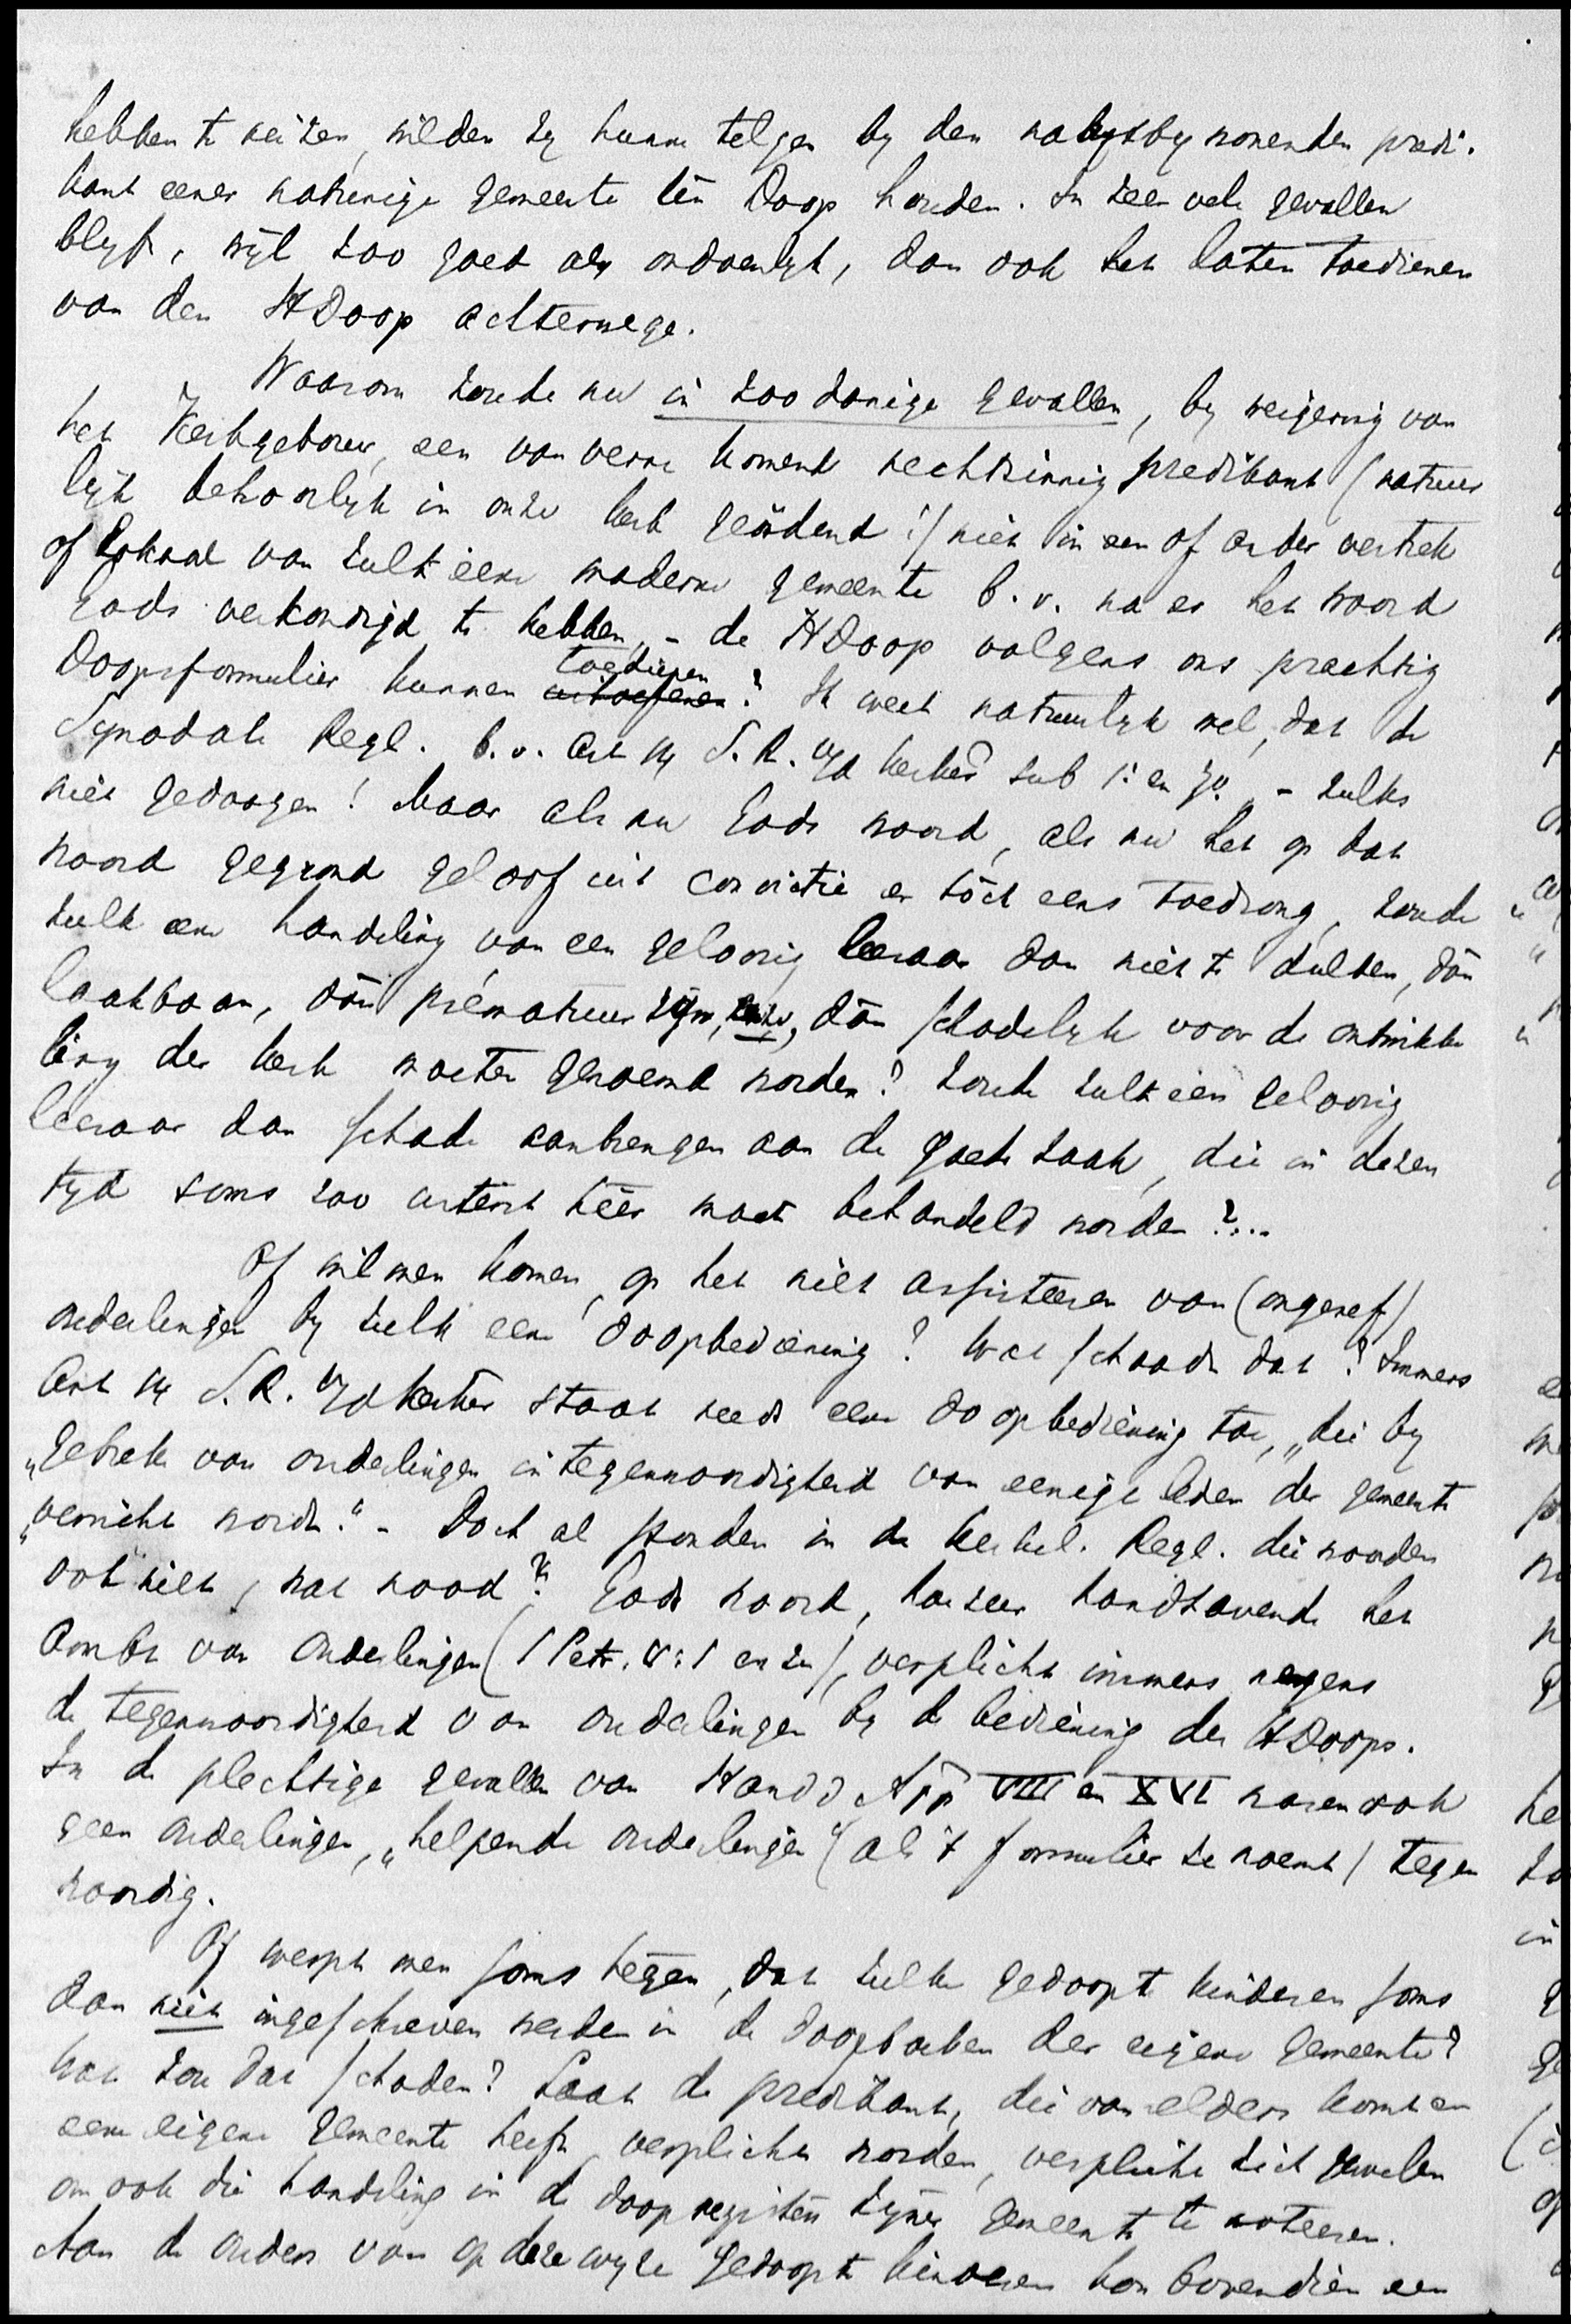 hebben te reizen, wilden zy hunne telgen by den naastbywonenden predi-
kant eener naburige gemeente ten Doop houden. In zeer vele gevallen
blyft, wyl zoo goed als ondoenlyk, dan ook het laten toedienen
van den H Doop achterwege.
Waarom zoude nu in zoodanige gevallen, by weigering van
het Kerkgebouw, een van verre komend rechtzinnig predikant (natuur
lijk behoorlyk in onze kerk geördend!) niet in een of ander vertrek
of lokaal van zulk eene moderne gemeente b.v. na er het woord
Gods verkondigd te hebben, - de H Doop volgens ons prachtig
Doopsformulier kunnen toedienen? Ik weet natuurlyk wel, dat de
Synodale Regl. b.v. Art 14 S.R. Gd kerken sub 1° en 3°. - zulks
niet gedoogen! Maar als nu Gods woord, als nu het op dat
woord gegrond geloof uit convictie er tóch eens toedrong, zoude
zulk eene handeling van een geloovig leeraar dan niet te dulden, dán
laakbaar, dán prématuur zijn, enz, dán schadelyk voor de ontwikke
ling der kerk moeten genoemd worden? Zoude zulk een geloovig
leeraar dan schade aanbrengen aan de goede zaak, die in dezen
tyd soms zoo uiterst téér moet behandeld worden?...
Of wil men komen op het niet assisteeren van (ongeref)
ouderlingen by zulk eene doopbediening? Wat schaadt dat? Immers
Art 14 S.R. Gd kerken staat reeds eene doopbediening toe, „die by
„gebrek van ouderlingen in tegenwoordigheid van eenige leden der gemeente
„verricht wordt." - Doch al stonden in de kerkel. Regl. die woorden
ook niet, wat nood? Gods woord, hoezeer handhavende het
Ambt van Ouderlingen (1 Petr. V:1 enz), verplicht immers nergens
de tegenwoordigheid van ouderlingen by de bediening des H Doops.
In de plechtige gevallen van Hand d App VIII en XVI waren ook
geen ouderlingen, „helpende ouderlingen" (als 't formulier ze noemt) tegen
woordig.
Of werpt men soms tegen, dat zulke gedoopte kinderen soms
dan niet ingeschreven werden in de doopboeken der eigene gemeente?
Wat zou dat schaden? Laat de predikant, die van elders komt en
eene eigene gemeente heeft, verplicht worden, verplichte zich zewelen
om ook die handeling in de doopregisters zyner gemeente te noteeren.
Aan de ouders van op deze wyze gedoopte kinderen kan bovendien een